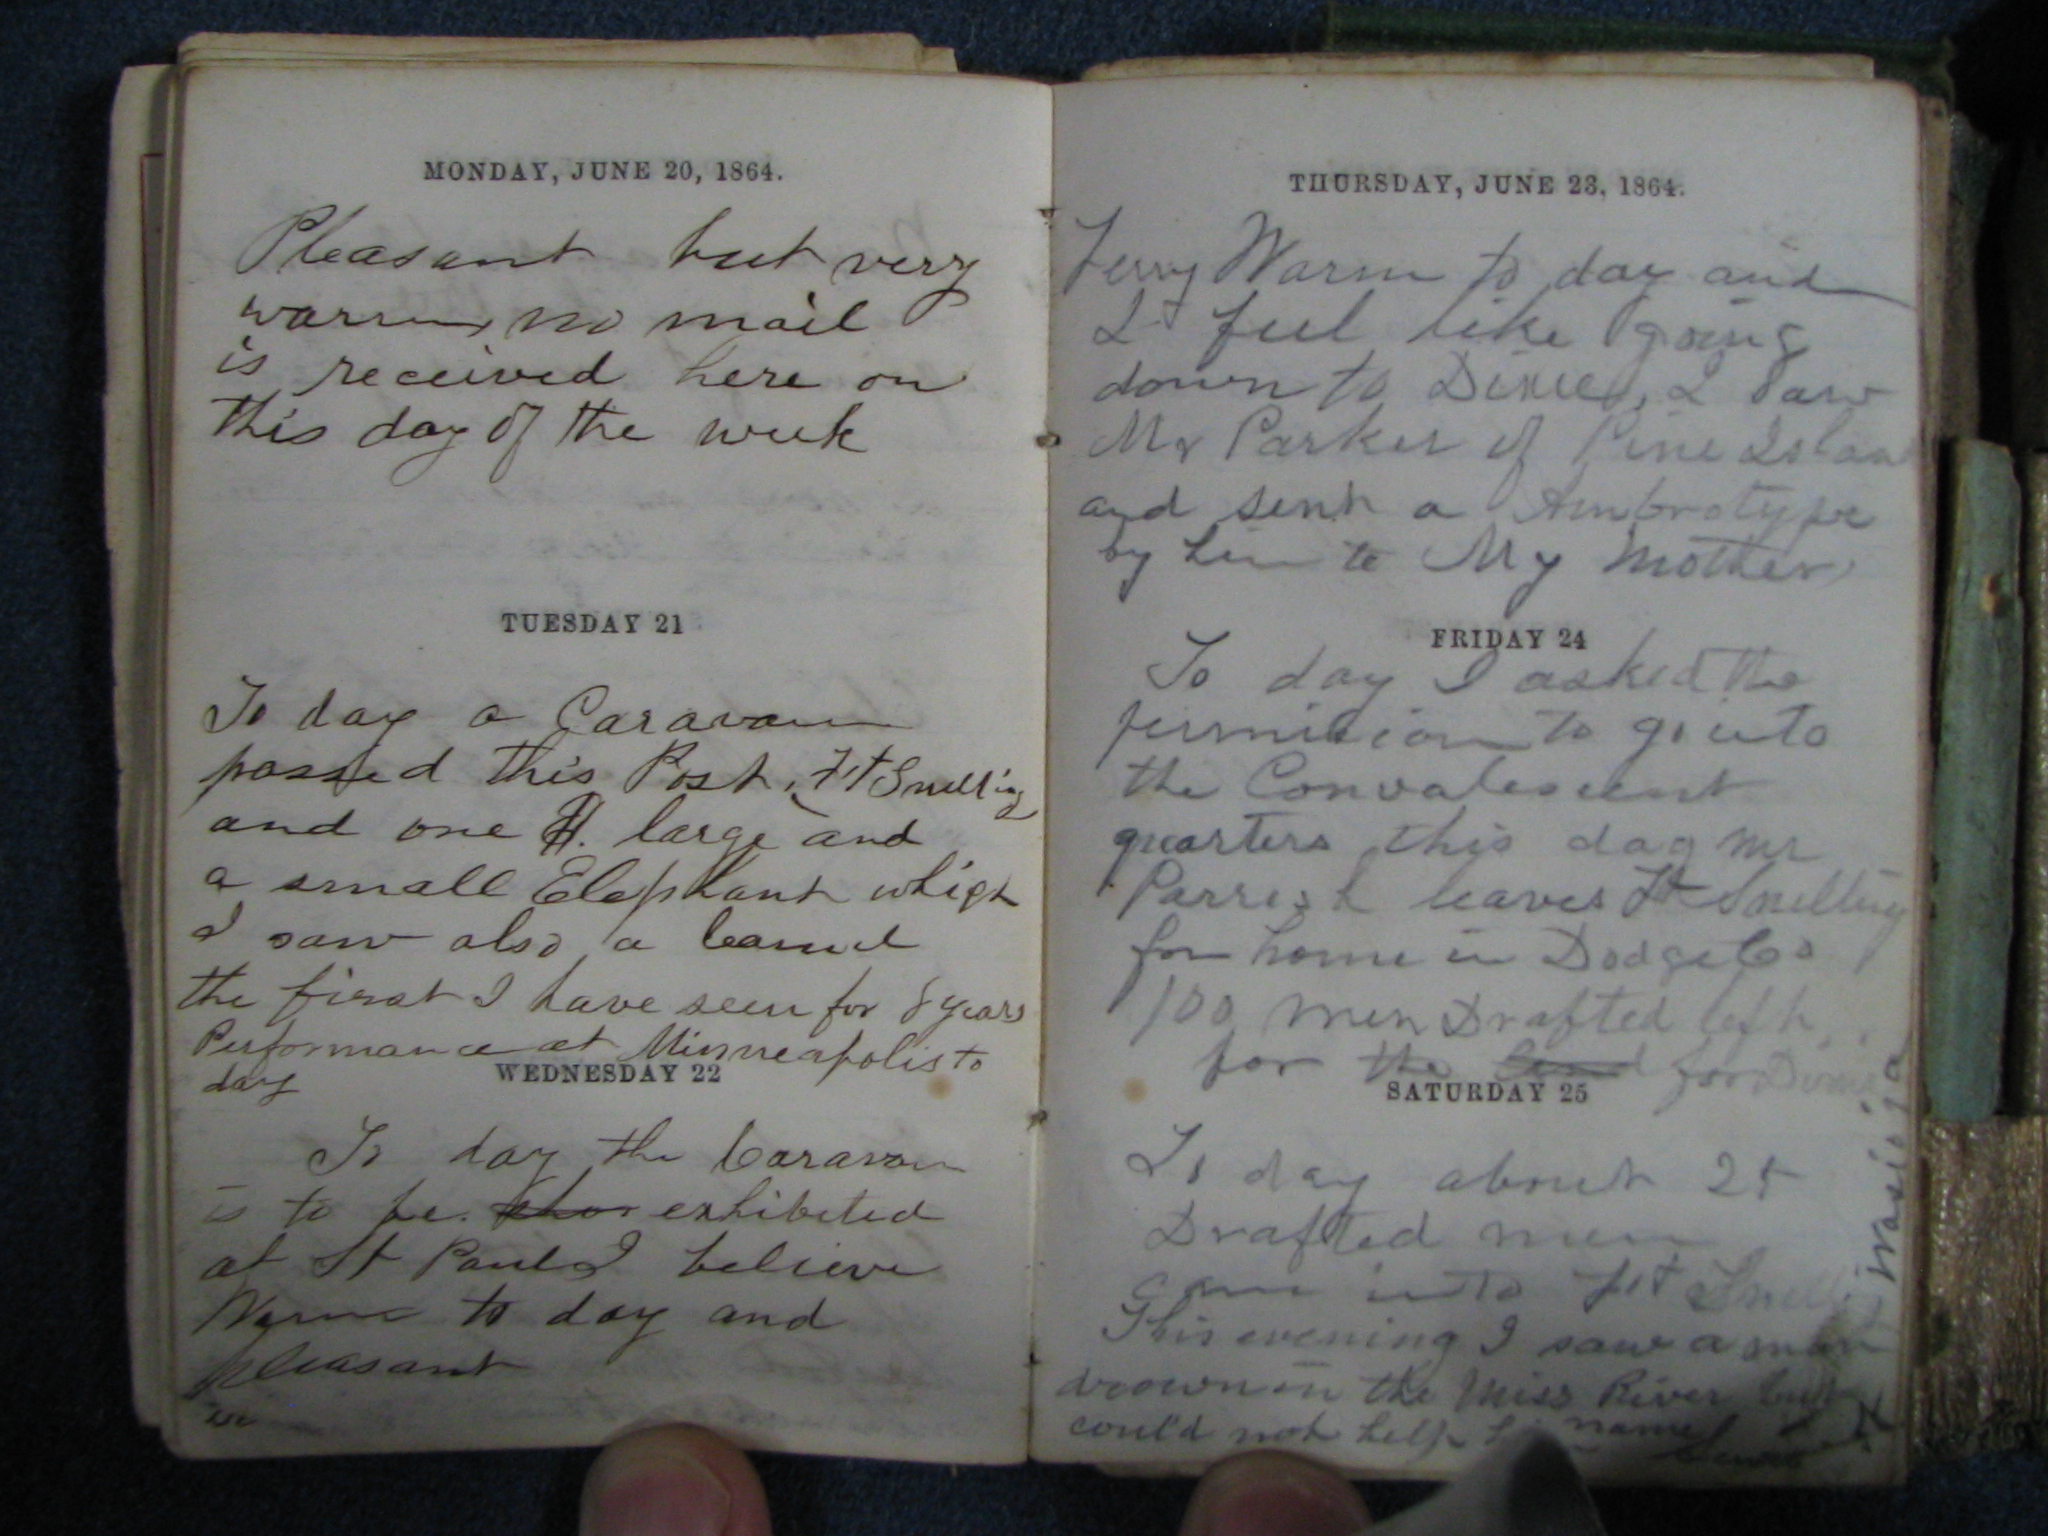 MONDAY, JUNE 20, 1864.
Pleasant but very
warm, no mail
is received here on
this day of the week
TUESDAY 21
To day a Caravan
passed this Post, Ft Snelling
and one H. large and
a small Elephant which
I saw also a Camel
the first I have seen for 8 years
Performance at Minneapolis to
day
WEDNESDAY 22
To day the Caravan
is to be. exhibited
at St Paul I believe
Warm to day and
pleasant
THURSDAY, JUNE 23, 1864.
Verry Warm to day and
I feel like going
down to Dixie, I saw
Mr Parker of Pine Island
and sent a Ambrotype
by him to My Mother
FRIDAY 24
To day I asked the
permission to go into
the Convalescent
quarters this day Mr
Parrish leaves Ft Snelling
for home in Dodge Co
100 men Drafted left
for the for Dixie
SATURDAY 25
To day about 25
Drafted men
came into Ft Snelling
This evening I saw a man
drown in the Miss River but
could not help him name
Lewis